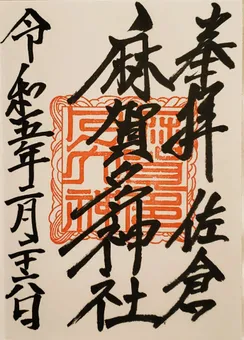 奉拝 佐倉
麻賀多神社
令和五年二月二十六日